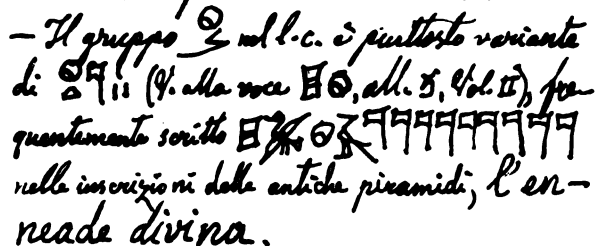 — Il gruppo 𓊖 nel l.c. è piuttosto variante
di 𓊖𓏏𓊹 (V. alla voce 𓊪𓊖, all. 5, Vol. II), fre-
quentemente scritto 𓊪𓅓𓊖𓅓𓊹𓊹𓊹𓊹𓊹𓊹𓊹𓊹𓊹
nelle inscrizioni delle antiche piramidi, l'en-
neade divina.